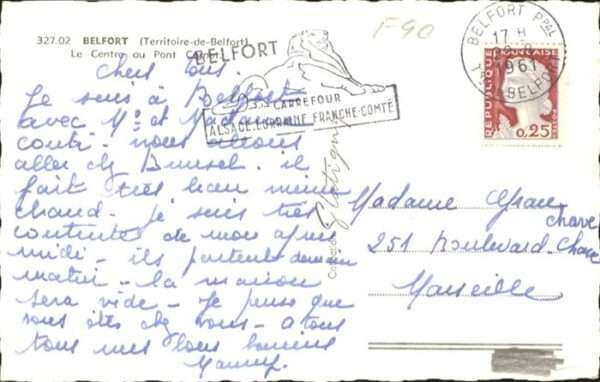 327.02 BELFORT (Territoire-de-Belfort)
Le Centre au Pont
F-90
BELFORT
CARREFOUR
ALSACE-LORRAINE FRANCHE-COMTÉ
BELFORT Ppal
17 H
1961
BELFORT
RÉPUBLIQUE FRANÇAISE
0,25
Chers tous.
Je suis à Belfort
avec Mr et Madame
conti - nous allons
aller chez Bunsel. il
fait très beau même
chaud - je suis très
contente de mon après
midi - ils partent demain
matin - la maison
sera vide - Je pense que
vous êtes chez vous - a tous
tous mes bons baisers
Mamy.
Madame
Chave
251 Boulevard Chave
Marseille